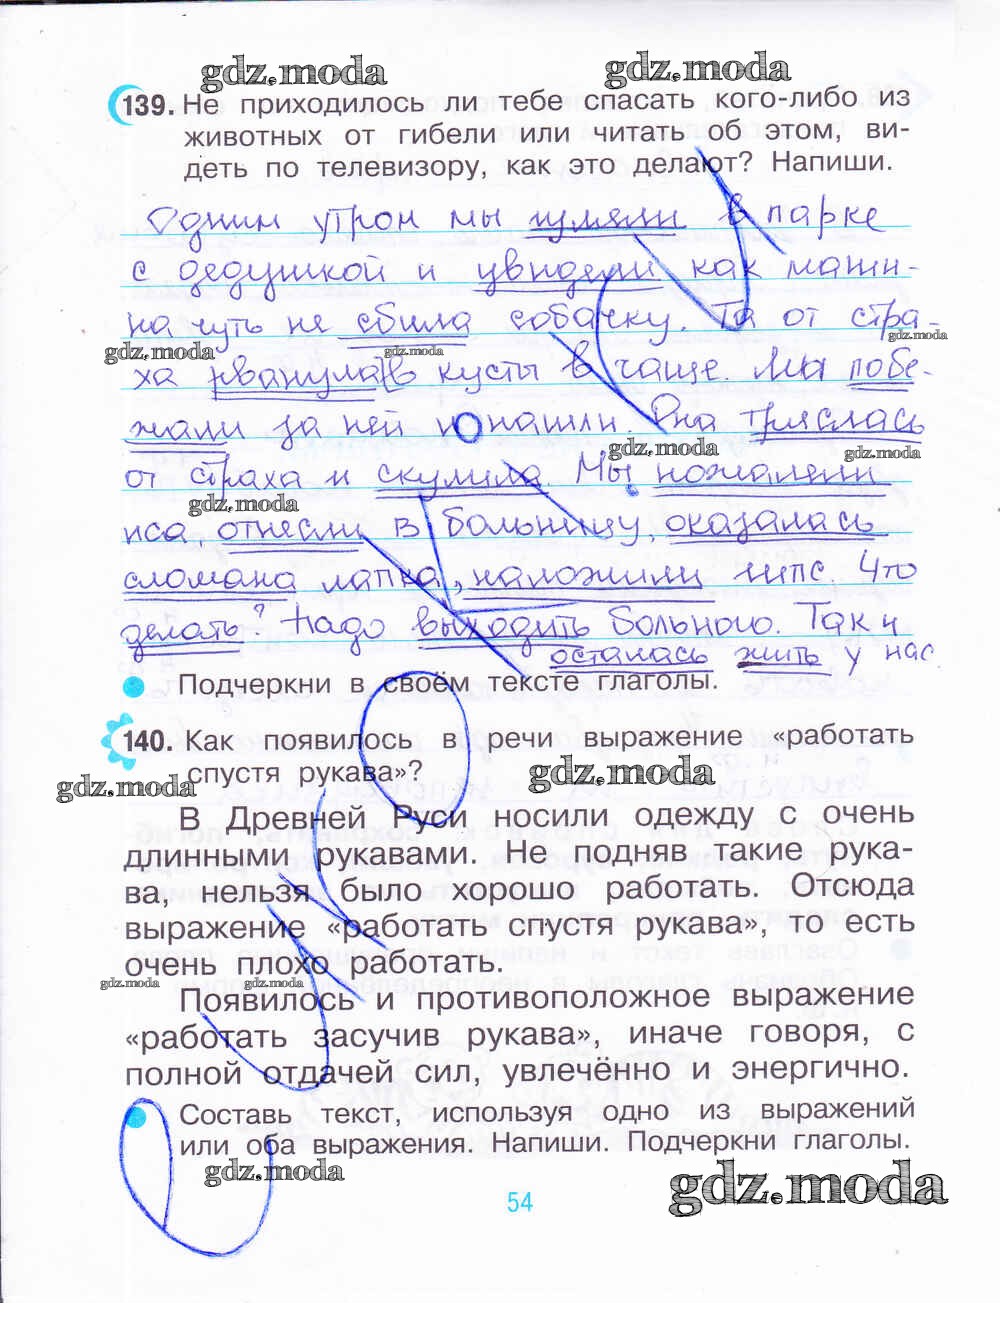 gdz.moda gdz.moda
139. Не приходилось ли тебе спасать кого-либо из
животных от гибели или читать об этом, ви-
деть по телевизору, как это делают? Напиши.
Одним утром мы гуляли в парке
с дедушкой и увидели как маши-
на чуть не сбила собачку. Та от стра-
gdz.moda gdz.moda gdz.moda
ха рванула в кусты в чаще. Мы побе-
жали за ней и нашли. Она тряслась
gdz.moda gdz.moda
от страха и скулила. Мы пожалели
gdz.moda
пса, отнесли в больницу, оказалась
сломана лапка, наложили гипс. Что
делать? Надо выходить больного. Так и
осталась жить у нас
Подчеркни в своём тексте глаголы.
140. Как появилось в речи выражение «работать
спустя рукава»?
gdz.moda gdz.moda
В Древней Руси носили одежду с очень
длинными рукавами. Не подняв такие рука-
ва, нельзя было хорошо работать. Отсюда
выражение «работать спустя рукава», то есть
очень плохо работать.
gdz.moda gdz.moda
Появилось и противоположное выражение
«работать засучив рукава», иначе говоря, с
полной отдачей сил, увлечённо и энергично.
Составь текст, используя одно из выражений
или оба выражения. Напиши. Подчеркни глаголы.
gdz.moda gdz.moda
54